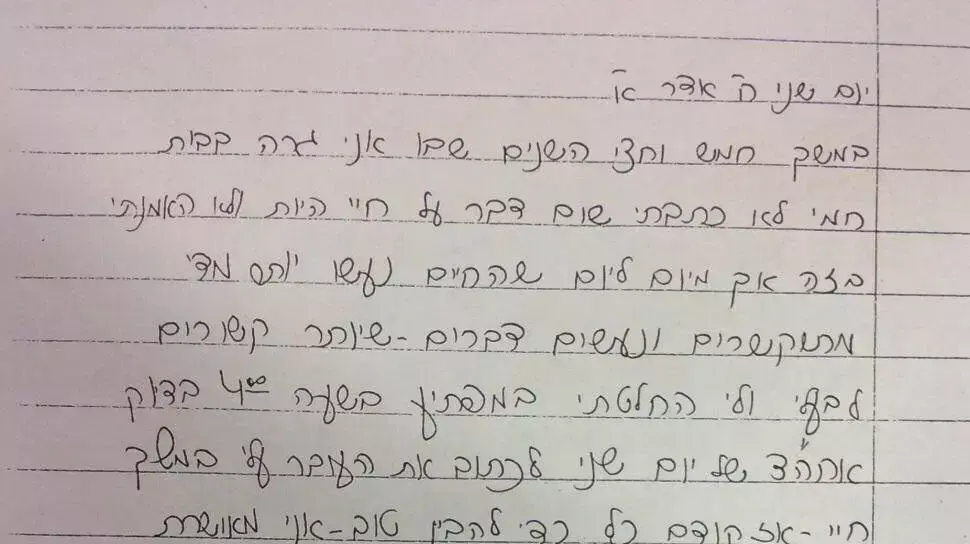 יום שני ה' אדר א'
במשך חמש וחצי השנים שבו אני גרה בבית
חמי לא כתבתי שום דבר על חיי היות ולא האמנתי
בזה אך מיום ליום שהחיים נעשו יותר מדי
מתקשרים ונעשים דברים - שיותר קשורים
לבעלי ולי החלטתי במפתיע בשעה 4⁰⁰ בדיוק
אחה"צ של יום שני לכתוב את העובר עלי במשך
חיי - אז קודם כל כדי להבין טוב - אני מאושרת